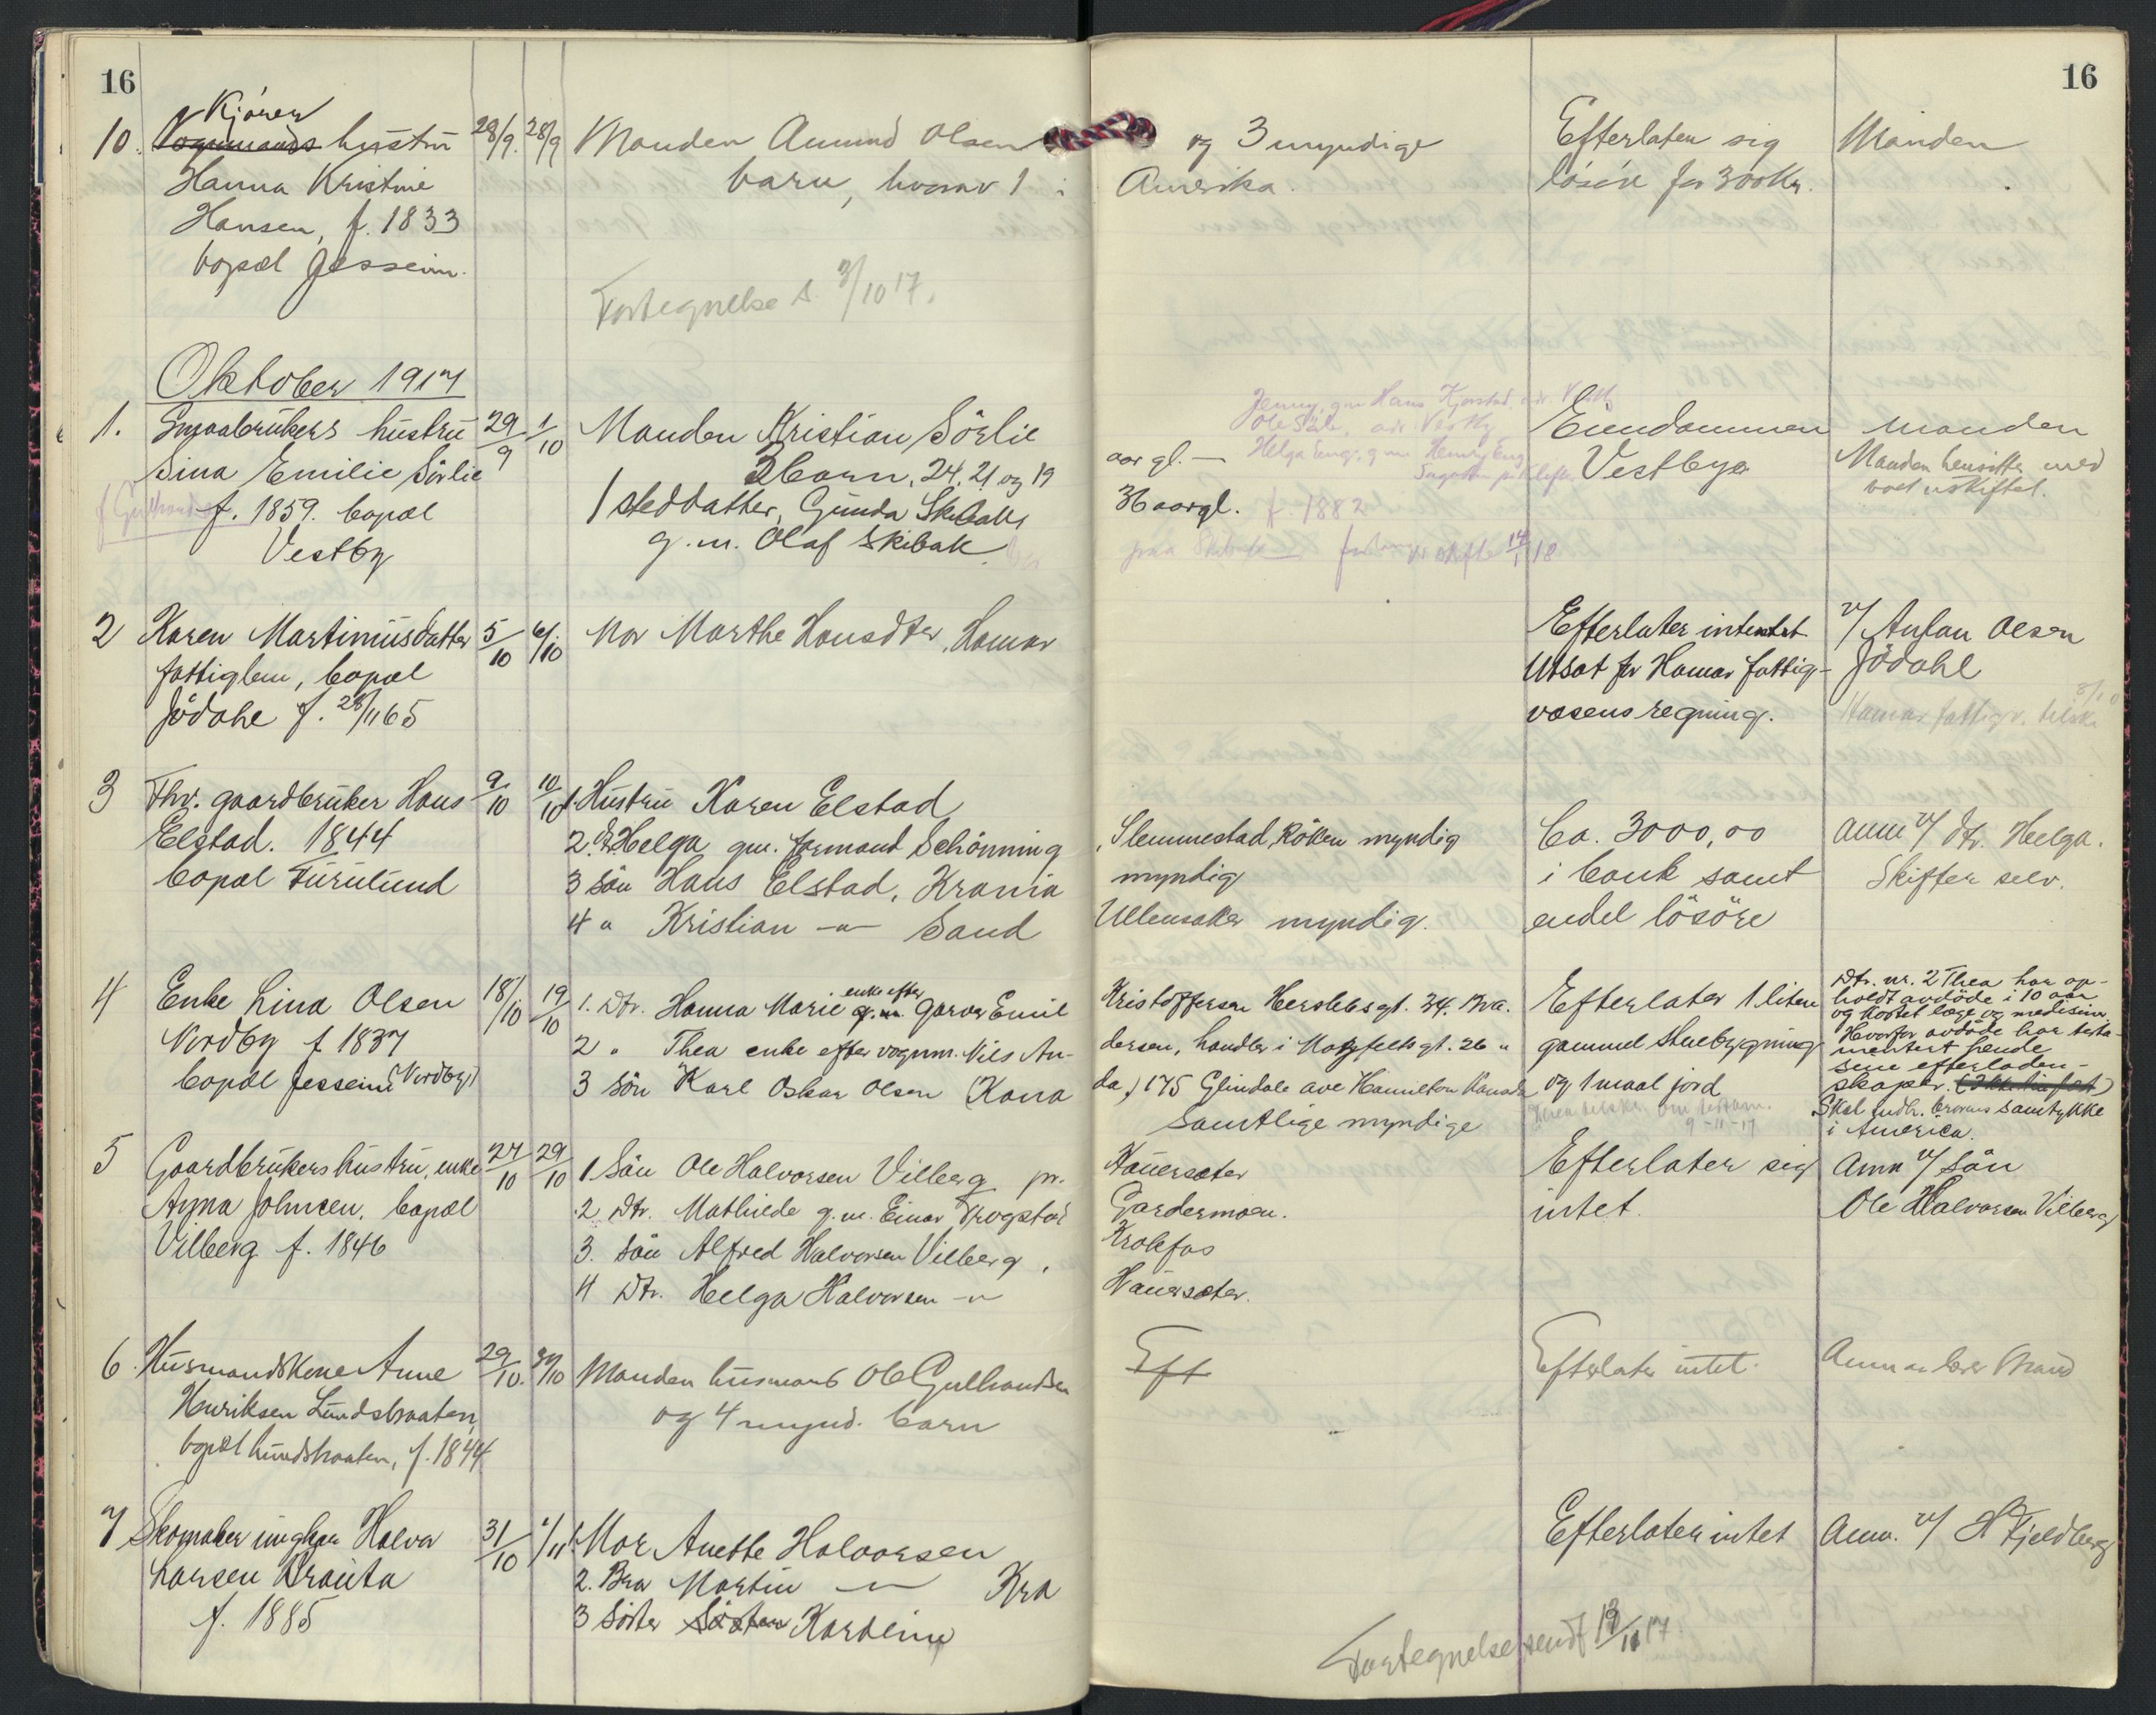 16
16
Kjörer
10. Vognmands hustru 28/9. 28/9 Manden Amund Olsen og 3 myndige Efterlater sig Manden
Hanna Kristine barn, hvorav 1 i Amerika. lösöre for 300 Kr.
Hansen, f. 1833
bopæl Jesseim.
Fortegnelse s. 3/10 17.
Oktober 1917
Jenny, gm Hans Kjorstad, adr. Vestby
Ole Sörlie, adr. Vestby
1. Smaabrukers hustru 29/9 1/10 Manden Kristian Sörlie Eiendommen Manden
Sina Emilie Sörlie 3 barn, 24, 21 og 19 aar gl. — Helga Eng, gm Henrik Eng Vestbye Manden hensitter med
f. 1859. bopæl 1 steddatter, Gunda Skibakk 36 aar gl. f. 1882 boet uskiftet.
Vestby g.m. Olaf Skibak
paa Skibak skifte 14/1 18
2 Karen Martinusdatter 5/10 6/10 Mor Marthe Hansdter, Hamar Efterlater intet v/ Anton Olsen
fattiglem, bopæl Utsat for Hamar fattig- Jödahl
Jödahl f. 28/11 65 væsens regning. Hamar fattigv. tilskr.
3 Fhv. gaardbruker Hans 9/10 10/10 1. Hustru Karen Elstad
Elstad. 1844 2. Dtr. Helga gm. formand Schönning, Slemmestad, Röken myndig Ca. 3000,00 Anm v/ dtr. Helga.
bopæl Furulund 3 Sön Hans Elstad, Krania myndig i bank samt Skifter selv.
4 " Kristian —"— Sand Ullensaker myndig. endel lösöre
4 Enke Lina Olsen 18/10 19/10 1. Dtr. Hanna Marie enke efter g.m. garver Emil Kristoffersen Herslebsgt. 34. Kra. Efterlater 1 liten Dtr. nr. 2 Thea har op-
Nordby f 1837 2 " Thea enke efter vognm. Nils An- dersen, handler i Motzfeldts gt. 26 " gammel stuebygning holdt avdöde i 10 aar
bopæl Jesseim (Nordby) 3 Sön Karl Oskar Olsen (Kana da) 175 Glindale ave Hamilton Kanada og 1 maal jord og kostet læge og medisin.
Samtlige myndige Hvorfor avdöde har testa-
Thea tilskr. om testam. mentert hende
9-11-17 sine efterladen-
skaper.
Skal indh. brorens samtykke
i America.
5 Gaardbrukers hustru, enke 27/10 29/10 1. Sön Ole Halvorsen Vilberg pr. Hauersæter Efterlater sig Anm v/ Sön
Anna Johnsen, bopæl 2 Dtr. Mathilde g.m. Einar Trogstad Gardermoen. intet. Ole Halvorsen Vilberg
Vilberg f. 1846 3. Sön Alfred Halvorsen Vilberg, Krokfos
4 Dtr. Helga Halvorsen —"— Hauersæter.
6. Husmandskone Anne 29/10. 30/10 Manden husmand Ole Gulbrandsen Eft Efterlater intet. Anm av Mand
Henriksen Lundsbraaten, og 4 mynd. barn
bopæl Lundsbraaten, f. 1844
7 Skomaker ungkar Halvor 31/10 1/11 1. Mor Anette Halvorsen Efterlater intet Anm. v/ H Fjeldberg
Larsen Brauta 2. Bror Martin —"— Kra
f. 1885 3 Söster Söster Kardine
Fortegnelse sendt 13/11 17.